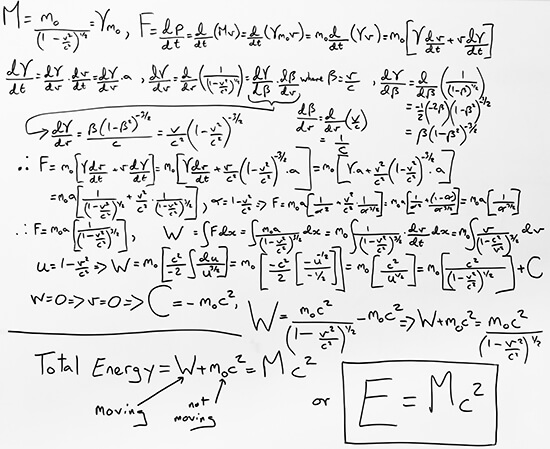 M = m₀/(1 - v²/c²)^½ = γm₀, F = dp/dt = d/dt (Mv) = d/dt (γm₀v) = m₀ d/dt (γv) = m₀[γ dv/dt + v dγ/dt]
dγ/dt = dγ/dv · dv/dt = dγ/dv · a, dγ/dv = d/dv (1/(1 - v²/c²)^½) = dγ/dβ · dβ/dv where β = v/c, dγ/dβ = d/dβ (1/(1-β)^½)
= -½(-2β)(1-β²)^(-3/2)
= β(1-β²)^(-3/2)
→ dγ/dv = β(1-β²)^(-3/2)/c = v/c² (1 - v²/c²)^(-3/2)
dβ/dv = d/dv (v/c)
= 1/c
∴ F = m₀[γ dv/dt + v dγ/dt] = m₀[γ dv/dt + v v/c² (1 - v²/c²)^(-3/2) · a] = m₀[γa + v²/c² (1 - v²/c²)^(-3/2) · a]
= m₀a[1/(1 - v²/c²)^½ + v²/c² · 1/(1 - v²/c²)^(3/2)], α = 1 - v²/c² ⇒ F = m₀a[1/α^½ + v²/c² · 1/α^(3/2)] = m₀a[(α + (1-α))/α^(3/2)] = m₀a[1/α^(3/2)]
∴ F = m₀a[1/(1 - v²/c²)^(3/2)], W = ∫F dx = ∫ m₀a/(1 - v²/c²)^(3/2) dx = m₀∫ 1/(1 - v²/c²)^(3/2) · dv/dt dx = m₀∫ v/(1 - v²/c²)^(3/2) dv
u = 1 - v²/c² ⇒ W = m₀[-c²/2 ∫ du/u^(3/2)] = m₀[-c²/2 [u^(-½)/(-½)]] = m₀[c²/u^½] = m₀[c²/(1 - v²/c²)^½] + C
W = 0 ⇒ v = 0 ⇒ C = -m₀c², W = m₀c²/(1 - v²/c²)^½ - m₀c² ⇒ W + m₀c² = m₀c²/(1 - v²/c²)^½
Total Energy = W + m₀c² = Mc²
moving
not moving
or
E = Mc²